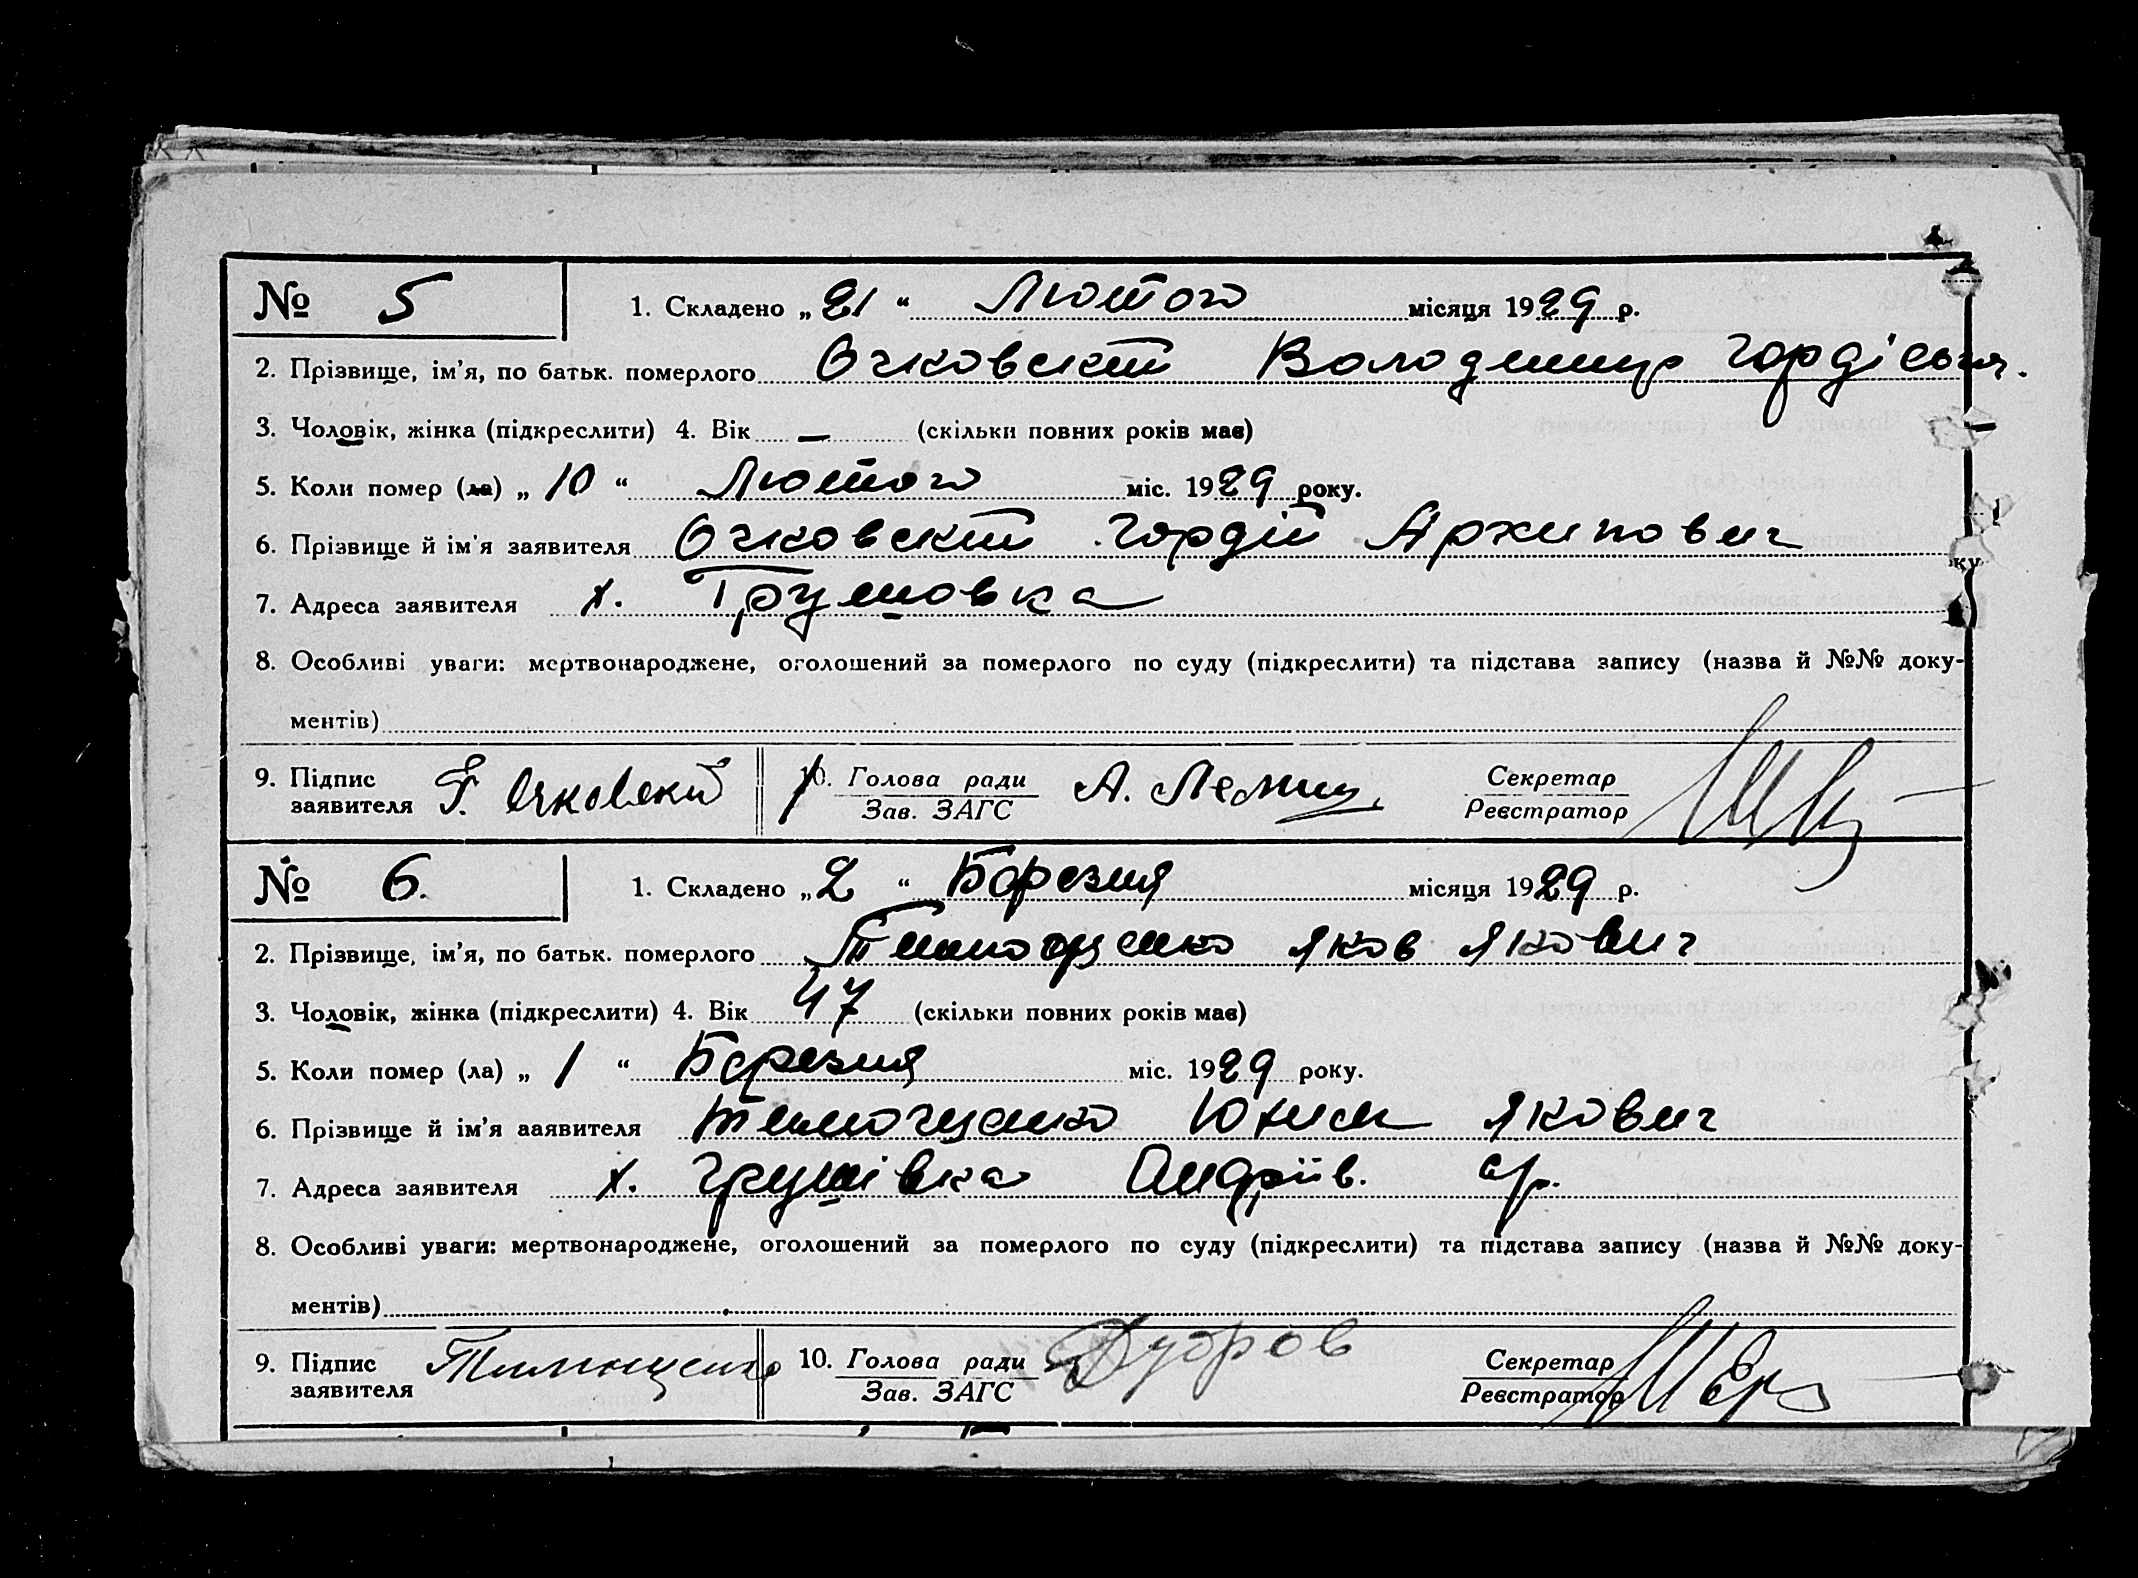 № 5 1. Складено „21“ Лютого місяця 1929 р.
2. Прізвище, ім'я, по батьк. померлого Очковский Володимир Гордієвич.
3. Чоловік, жінка (підкреслити) 4. Вік — (скільки повних років має)
5. Коли помер (ла) „10“ Лютого міс. 1929 року.
6. Прізвище й ім'я заявителя Очковский Гордій Архипович
7. Адреса заявителя х. Грушовка
8. Особливі уваги: мертвонароджене, оголошений за померлого по суду (підкреслити) та підстава запису (назва й №№ доку-
ментів)
9. Підпис заявителя Г. Очковский 10. Голова ради Зав. ЗАГС А. Секретар Реєстратор
№ 6. 1. Складено „2“ Березня місяця 1929 р.
2. Прізвище, ім'я, по батьк. померлого Яков Якович
3. Чоловік, жінка (підкреслити) 4. Вік 47 (скільки повних років має)
5. Коли помер (ла) „1“ Березня міс. 1929 року.
6. Прізвище й ім'я заявителя Якович
7. Адреса заявителя х. Грушівка Андріїв. с/р.
8. Особливі уваги: мертвонароджене, оголошений за померлого по суду (підкреслити) та підстава запису (назва й №№ доку-
ментів)
9. Підпис заявителя 10. Голова ради Зав. ЗАГС Секретар Реєстратор